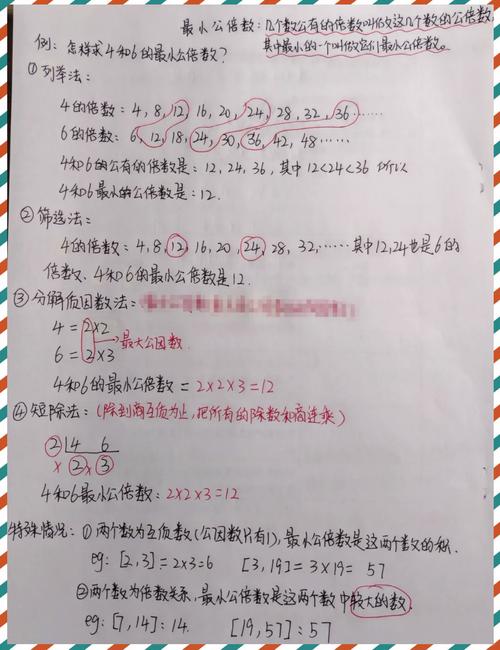 最小公倍数：几个数公有的倍数叫做这几个数的公倍数
其中最小的一个叫做它们最小公倍数。
例：怎样求4和6的最小公倍数？
①列举法：
4的倍数：4，8，12，16，20，24，28，32，36……
6的倍数：6，12，18，24，30，36，42，48……
4和6的公有的倍数是：12，24，36，其中12<24<36 所以
4和6最小的公倍数是：12.
②筛选法：
4的倍数：4，8，12，16，20，24，28，32，……其中12,24也是6的
倍数、4和6的最小公倍数是12.
③分解质因数法：
4=2×2
最大公因数.
6=2×3
4和6的最小公倍数=2×2×3=12
④短除法：（除到商互质为止，把所有的除数和商连乘）
2 4 6
× 2 × 3
4和6最小公倍数：2×2×3=12
特殊情况：①两个数为互质数（公因数只有1），最小公倍数是这两个数的积.
eg：[2,3]=2×3=6 [3,19]=3×19=57
②两个数为倍数关系，最小公倍数是这两个数中较大的数.
eg：[7,14]：14. [19,57]：57